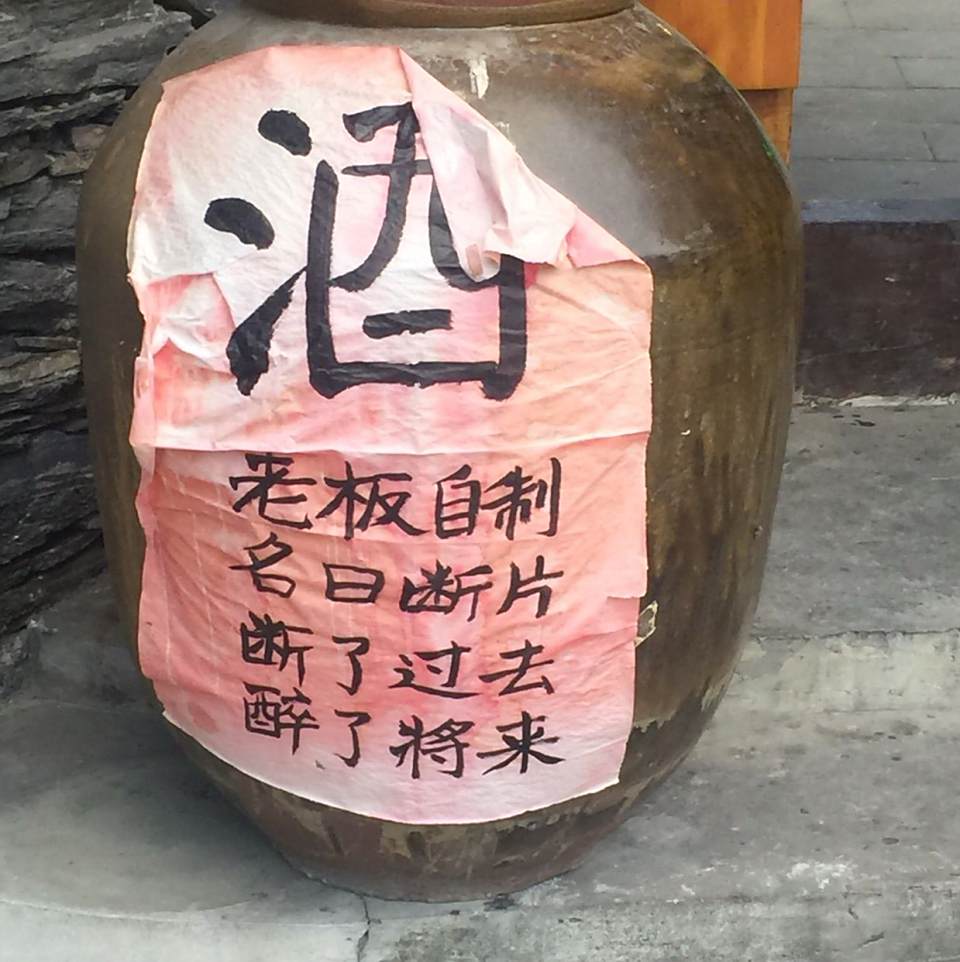 酒
老板自制
名曰断片
断了过去
醉了将来